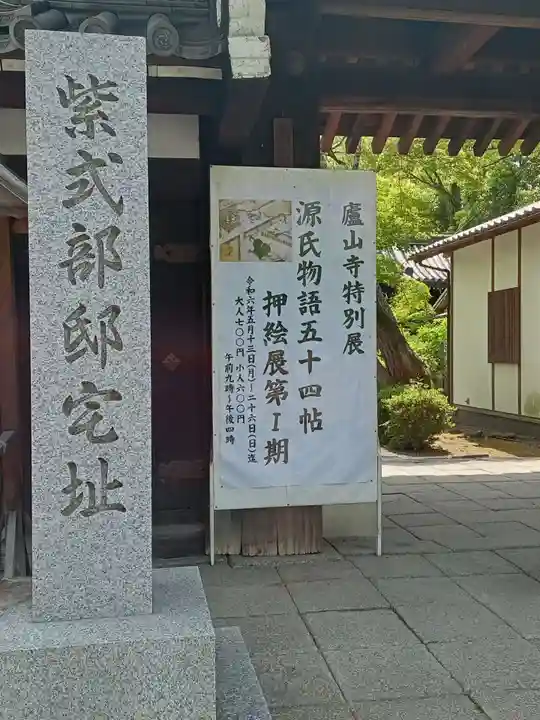 紫式部邸宅址
廬山寺特別展
源氏物語五十四帖
押絵展第Ⅰ期
令和六年五月十三日(月)~二十六日(日)迄
大人七〇〇円 小人六〇〇円
午前九時~午後四時